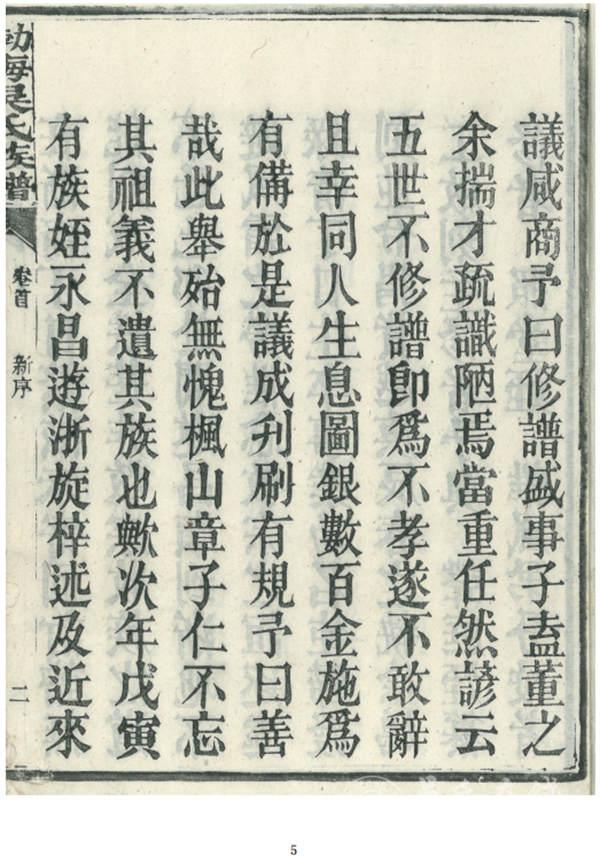 議咸商予曰修譜盛事子盍董之
余揣才疏識陋焉當重任然諺云
五世不修譜卽爲不孝遂不敢辭
且幸同人生息圖銀數百金施爲
有備於是議成刋刷有規予曰善
哉此舉殆無愧楓山章子仁不忘
其祖義不遺其族也歟次年戊寅
有族姪永昌遊浙旋梓述及近來
渤海吳氏族譜
卷首
新序
二
5